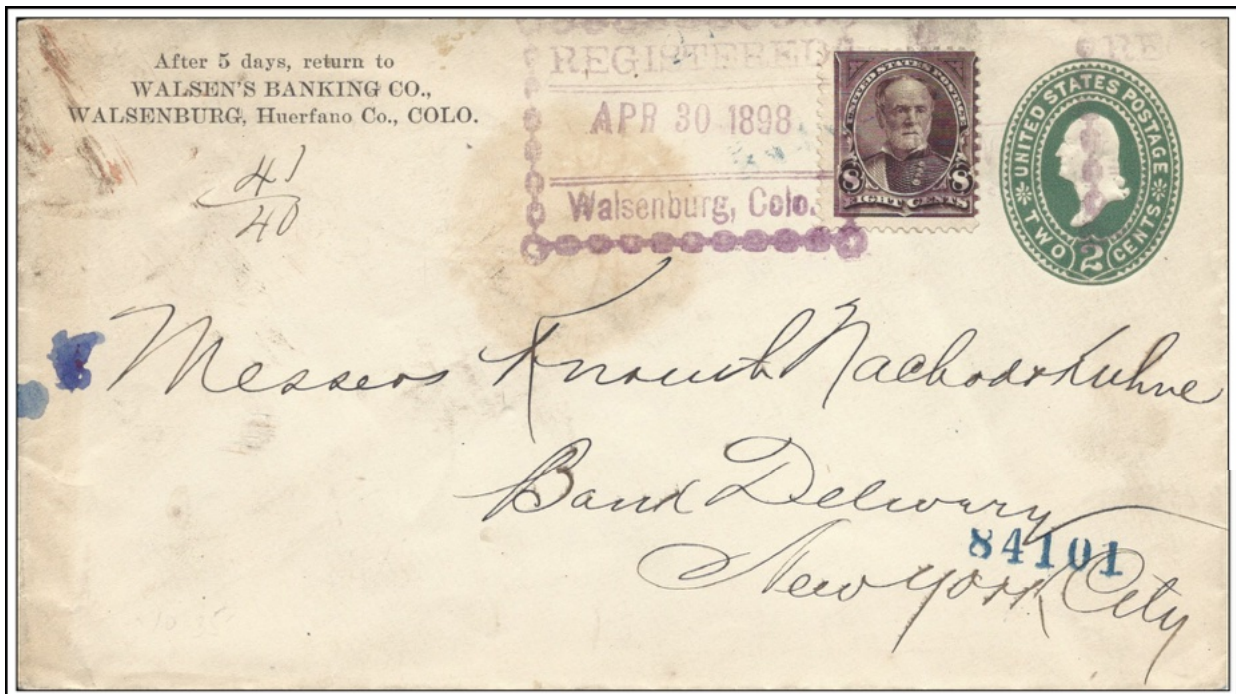 After 5 days, return to
WALSEN'S BANKING CO.,
WALSENBURG, Huerfano Co., COLO.
41
40
REGISTERED
APR 30 1898
Walsenburg, Colo.
RE
UNITED STATES POSTAGE
8 8
EIGHT CENTS
UNITED STATES POSTAGE
TWO 2 CENTS
Messers Knauth Nachod & Kuhne
Bank Delivery
84101
New York City